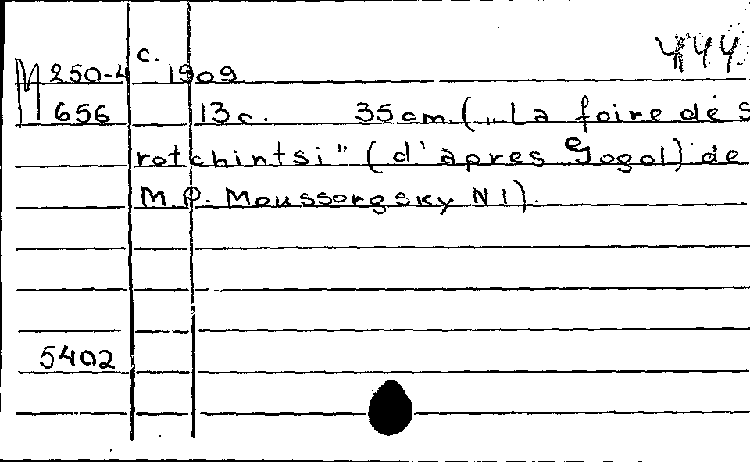 444
M 250-4 c. 1909
656 13c. 35cm. („La foire de S
rotchintsi" (d'apres Gogol) de
M. P. Moussorgsky N 1).
5402